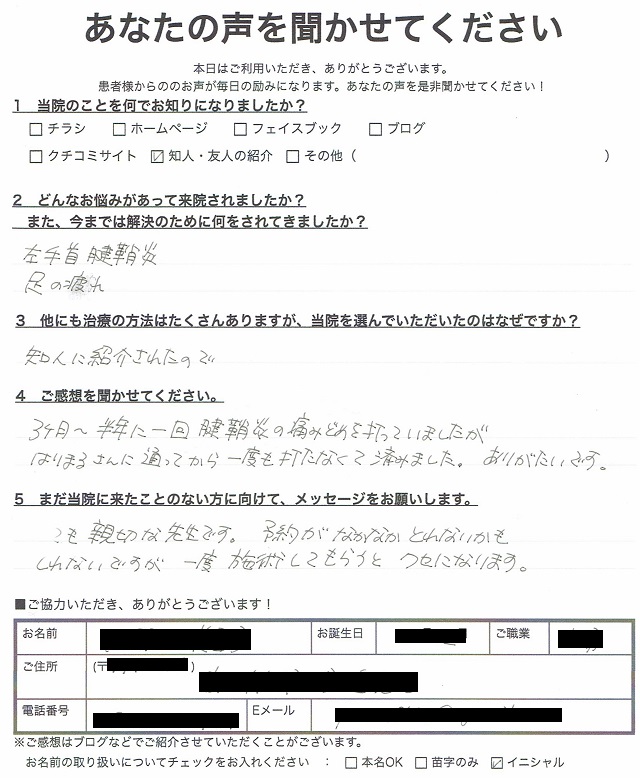 あなたの声を聞かせてください
本日はご利用いただき、ありがとうございます。
患者様からののお声が毎日の励みになります。あなたの声を是非聞かせてください！
1 当院のことを何でお知りになりましたか？
□ チラシ □ ホームページ □ フェイスブック □ ブログ
□ クチコミサイト ☑ 知人・友人の紹介 □ その他（ ）
2 どんなお悩みがあって来院されましたか？
また、今までは解決のために何をされてきましたか？
左手首 腱鞘炎
足の疲れ
3 他にも治療の方法はたくさんありますが、当院を選んでいただいたのはなぜですか？
知人に紹介されたので
4 ご感想を聞かせてください。
3ヶ月〜半年に一回 腱鞘炎の痛みどめを打っていましたが
はりまるさんに通ってから一度も打たなくて済みました。ありがたいです。
5 まだ当院に来たことのない方に向けて、メッセージをお願いします。
も親切な先生です。予約がなかなかとれないかも
しれないですが 一度 施術してもらうと クセになります。
■ご協力いただき、ありがとうございます！
お名前 お誕生日 ご職業
ご住所 (〒 )
電話番号 Eメール
※ご感想はブログなどでご紹介させていただくことがございます。
お名前の取り扱いについてチェックをお入れください ： □ 本名OK □ 苗字のみ ☑ イニシャル